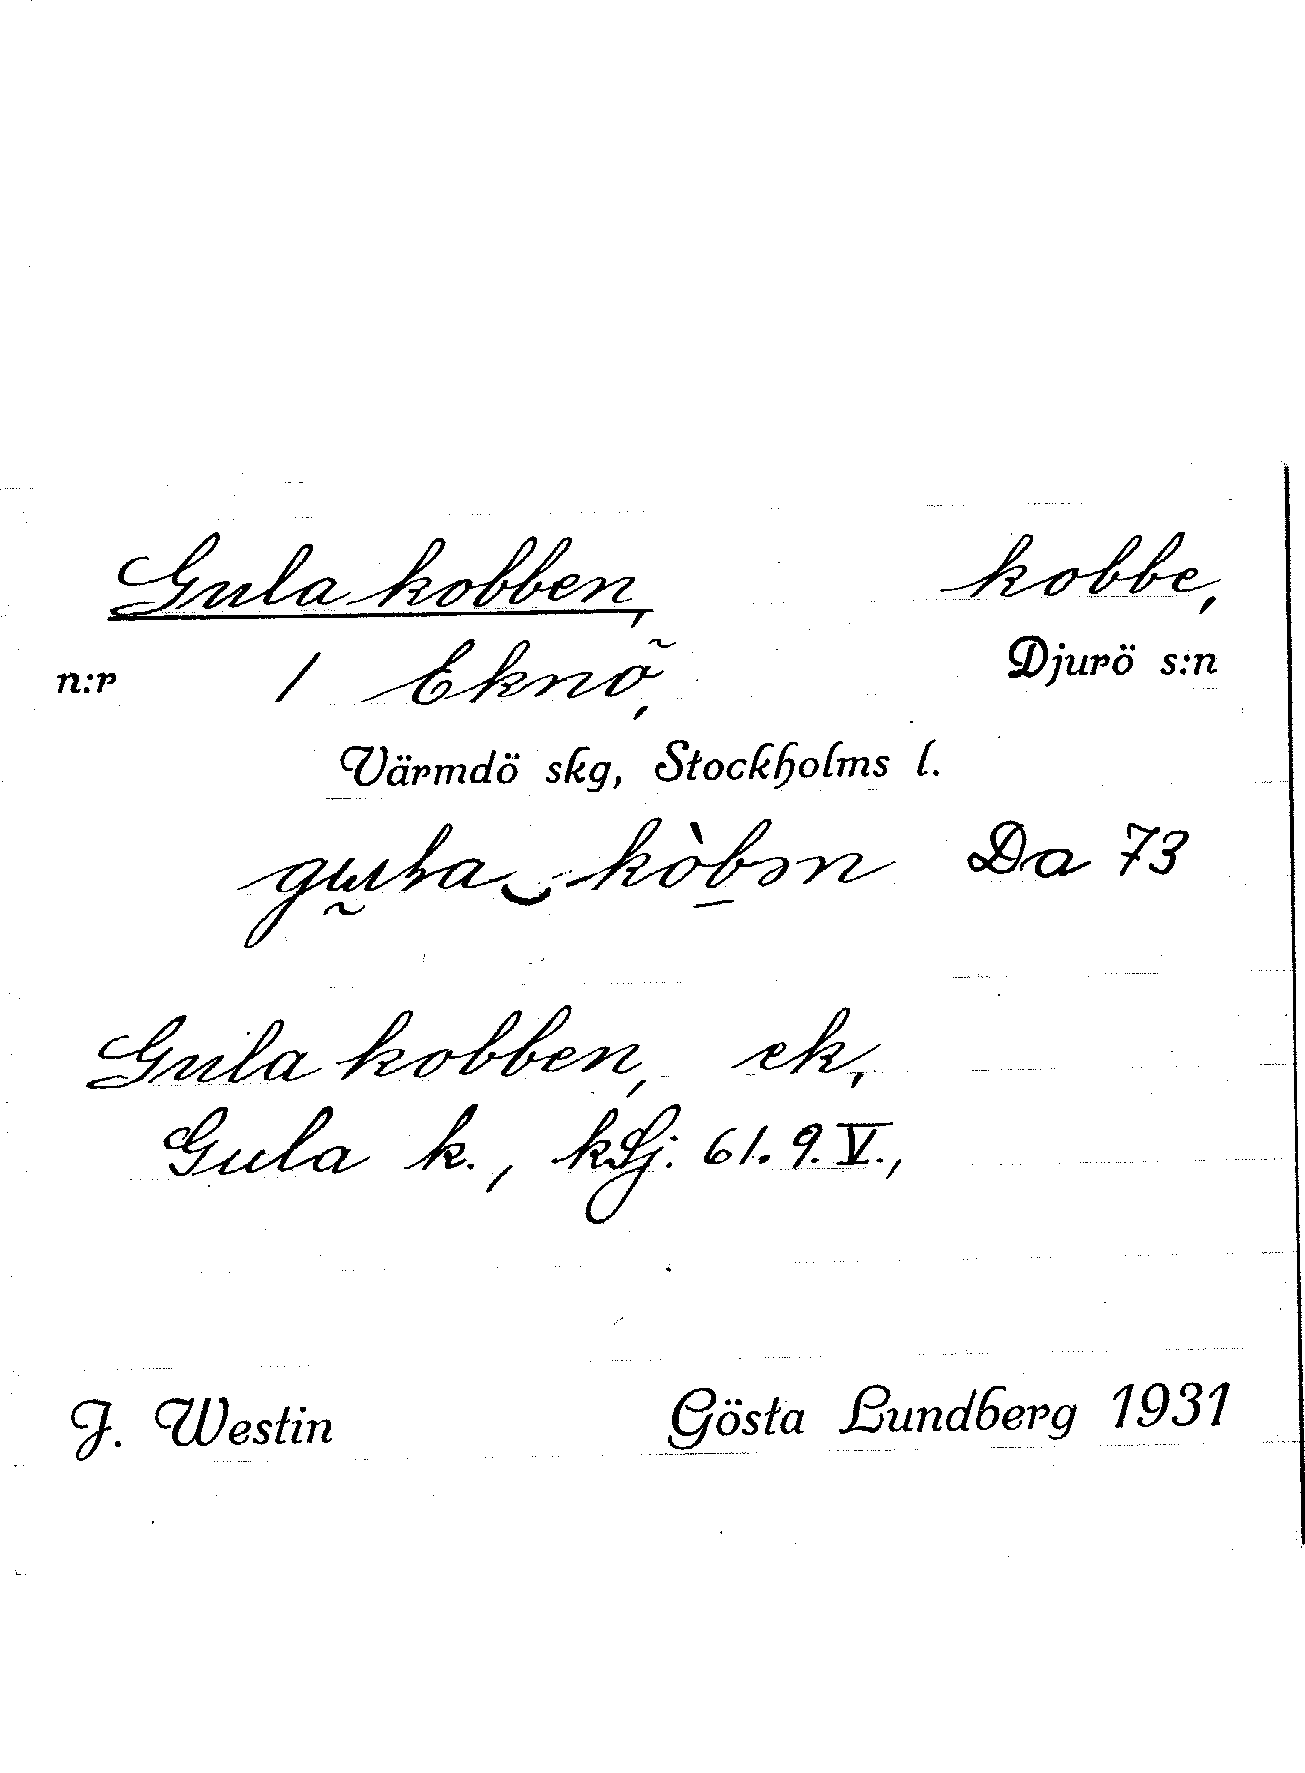 Gula kobben, kobbe,
n:r 1 Eknö, Djurö s:n
Värmdö skg, Stockholms l.
kòbən Da 73
Gula kobben, ek,
Gula k., kSj: 61. 9. V.,
J. Westin Gösta Lundberg 1931